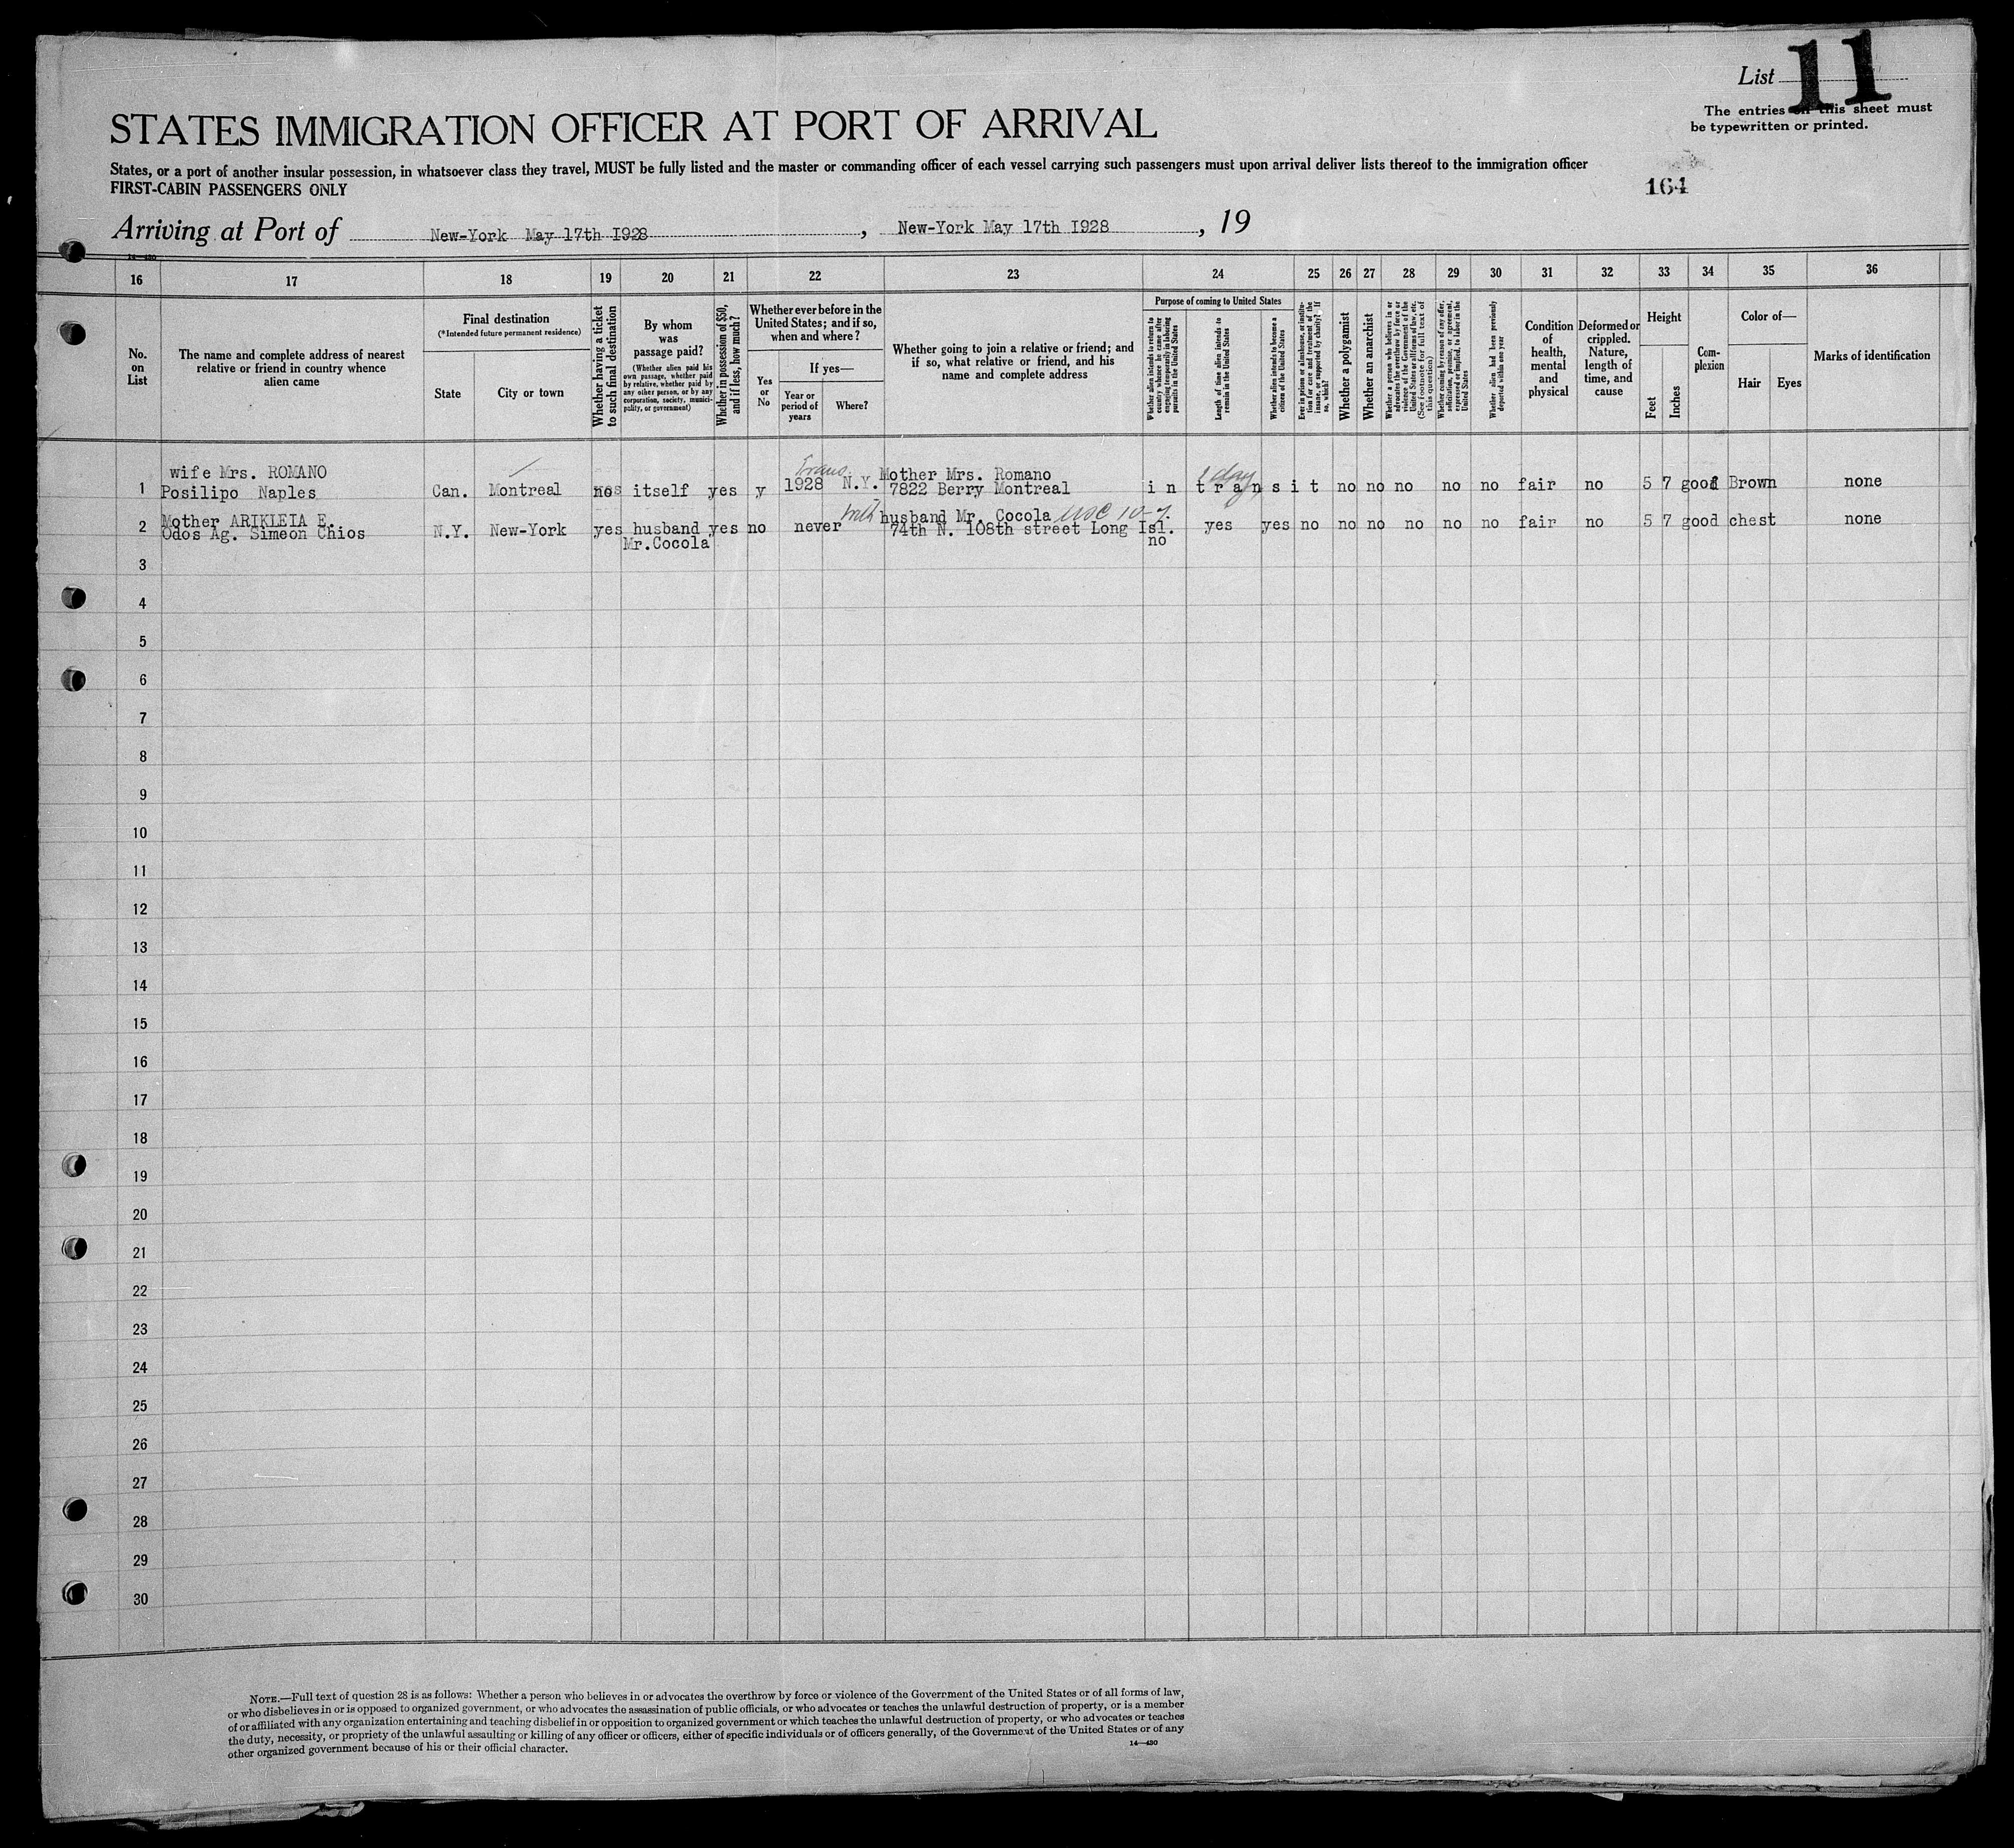 List 11
The entries on this sheet must
be typewritten or printed.
STATES IMMIGRATION OFFICER AT PORT OF ARRIVAL
States, or a port of another insular possession, in whatsoever class they travel, MUST be fully listed and the master or commanding officer of each vessel carrying such passengers must upon arrival deliver lists thereof to the immigration officer
FIRST-CABIN PASSENGERS ONLY
164
Arriving at Port of New-York May 17th 1928, New-York May 17th 1928, 19
14—430
16 17 18 19 20 21 22 23 24 25 26 27 28 29 30 31 32 33 34 35 36
No. on List
The name and complete address of nearest
relative or friend in country whence
alien came
Final destination
(*Intended future permanent residence)
State
City or town
Whether having a ticket
to such final destination
By whom
was
passage paid?
(Whether alien paid his
own passage, whether paid
by relative, whether paid by
any other person, or by any
corporation, society, munici-
pality, or government)
Whether in possession of $50,
and if less, how much?
Whether ever before in the
United States; and if so,
when and where?
Yes
or
No
If yes—
Year or
period of
years
Where?
Whether going to join a relative or friend; and
if so, what relative or friend, and his
name and complete address
Purpose of coming to United States
Whether alien intends to return to
country whence he came after
engaging temporarily in laboring
pursuits in the United States
Length of time alien intends to
remain in the United States
Whether alien intends to become a
citizen of the United States
Ever in prison or almshouse, or institu-
tion for care and treatment of the
insane, or supported by charity? If
so, which?
Whether a polygamist
Whether an anarchist
Whether a person who believes in or
advocates the overthrow by force or
violence of the Government of the
United States or all forms of law, etc.
(See footnote for full text of
this question)
Whether coming by reason of any offer,
solicitation, promise, or agreement,
expressed or implied, to labor in the
United States
Whether alien had been previously
deported within one year
Condition
of
health,
mental
and
physical
Deformed or
crippled.
Nature,
length of
time, and
cause
Height
Feet
Inches
Com-
plexion
Color of—
Hair
Eyes
Marks of identification
wife Mrs. ROMANO Trans Mother Mrs. Romano 1 day
1 Posilipo Naples Can. Montreal itself yes y 1928 N.Y. 7822 Berry Montreal in transit no no no no no fair no 5 7 good Brown none
Mother ARIKLEIA E. husband Mr. Cocola
2 Odos Ag. Simeon Chios N.Y. New-York yes husband yes no never 74th N. 108th street Long Isl. yes yes no no no no no no fair no 5 7 good chest none
Mr.Cocola no
3
4
5
6
7
8
9
10
11
12
13
14
15
16
17
18
19
20
21
22
23
24
25
26
27
28
29
30
NOTE.—Full text of question 28 is as follows: Whether a person who believes in or advocates the overthrow by force or violence of the Government of the United States or of all forms of law,
or who disbelieves in or is opposed to organized government, or who advocates the assassination of public officials, or who advocates or teaches the unlawful destruction of property, or is a member
of or affiliated with any organization entertaining and teaching disbelief in or opposition to organized government or which teaches the unlawful destruction of property, or who advocates or teaches
the duty, necessity, or propriety of the unlawful assaulting or killing of any officer or officers, either of specific individuals or of officers generally, of the Government of the United States or of any
other organized government because of his or their official character.
14—430